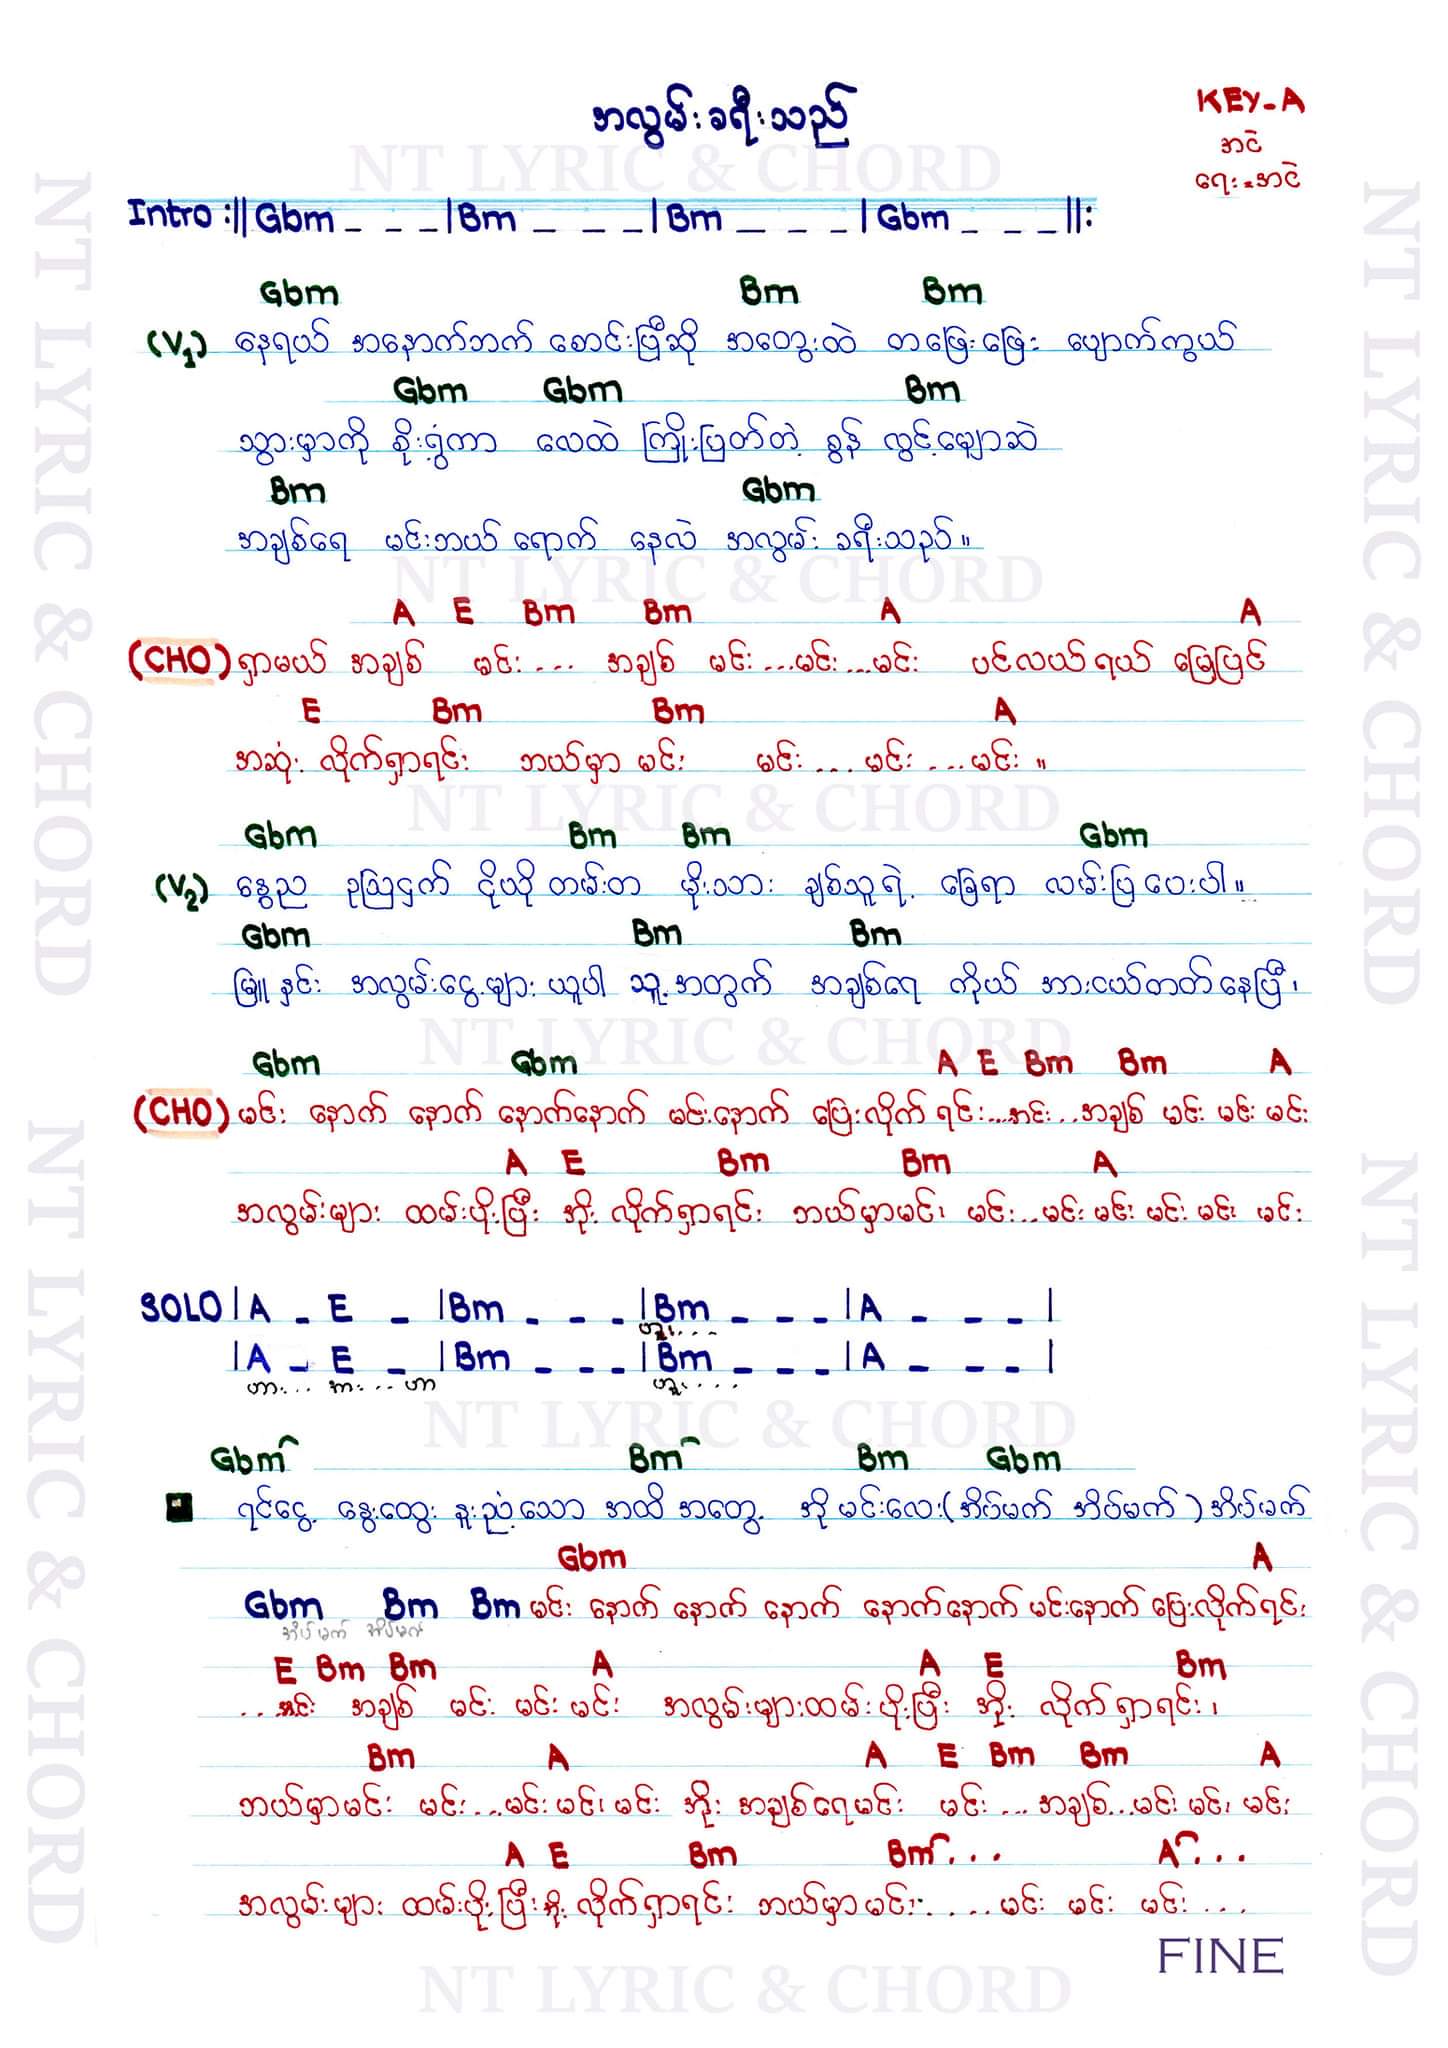 အလွမ်းခရီးသည်
KEY-A
အငဲ
ရေး-အငဲ
NT LYRIC & CHORD
Intro :|| Gbm _ _ _ | Bm _ _ _ | Bm _ _ _ | Gbm _ _ _ ||:
Gbm Bm Bm
(V1) နေရယ် အနောက်ဘက် စောင်းပြီဆို အတွေးထဲ တဖြေးဖြေး ပျောက်ကွယ်
Gbm Gbm Bm
သွားမှာကို စိုးရွံ့ကာ လေထဲ ကြိုးပြတ်တဲ့ စွန် လွင့်မျောဆဲ
Bm Gbm
အချစ်ရေ မင်းဘယ် ရောက် နေလဲ အလွမ်း ခရီးသည်။
NT LYRIC & CHORD
A E Bm Bm A A
(CHO) ရှာမယ် အချစ် မင်း... အချစ် မင်း...မင်း...မင်း ပင်လယ်ရယ် မြေပြင်
E Bm Bm A
အဆုံး လိုက်ရှာရင်း ဘယ်မှာ မင်း မင်း...မင်း...မင်း။
NT LYRIC & CHORD
Gbm Bm Bm Gbm
(V2) နွေည ဥဩငှက် ငိုယို တမ်းတ မိုးသား ချစ်သူရဲ့ ခြေရာ လမ်းပြပေးပါ။
Gbm Bm Bm
မြူနှင်း အလွမ်းငွေ့များ ယူပါ သူ့အတွက် အချစ်ရေ ကိုယ် အားငယ်တတ်နေပြီ၊
NT LYRIC & CHORD
Gbm Gbm A E Bm Bm A
(CHO) မင်း နောက် နောက် နောက်နောက် မင်းနောက် ပြေးလိုက်ရင်း...အင်း...အချစ် မင်း မင်း မင်း
A E Bm Bm A
အလွမ်းများ ထမ်းပိုးပြီး အိုး လိုက်ရှာရင်း ဘယ်မှာမင်း၊ မင်း...မင်း မင်း မင်း မင်း မင်း
SOLO | A _ E _ | Bm _ _ _ | Bm _ _ _ | A _ _ _ |
ဟူး....
| A _ E _ | Bm _ _ _ | Bm _ _ _ | A _ _ _ |
ဟား... အား... ဟာ ဟူး....
NT LYRIC & CHORD
Gbm Bm Bm Gbm
ရင်ငွေ့ နွေးထွေး နူးညံ့သော အထိ အတွေ့ အို မင်းလေး(အိပ်မက် အိပ်မက်)အိပ်မက်
Gbm A
Gbm Bm Bm မင်း နောက် နောက် နောက် နောက်နောက် မင်းနောက် ပြေးလိုက်ရင်း
အိပ်မက် အိပ်မက်
E Bm Bm A A E Bm
...အင်း အချစ် မင်း မင်း မင်း အလွမ်းများထမ်းပိုးပြီး အိုး လိုက်ရှာရင်း၊
Bm A A E Bm Bm A
ဘယ်မှာမင်း မင်း...မင်း မင်း၊ မင်း အိုး အချစ်ရေမင်း မင်း... အချစ်...မင်း မင်း၊ မင်း
A E Bm Bm... A...
အလွမ်းများ ထမ်းပိုးပြီးအိုး လိုက်ရှာရင်း ဘယ်မှာမင်း.....မင်း မင်း မင်း...
FINE
NT LYRIC & CHORD
NT LYRIC & CHORD
NT LYRIC & CHORD
NT LYRIC & CHORD
NT LYRIC & CHORD